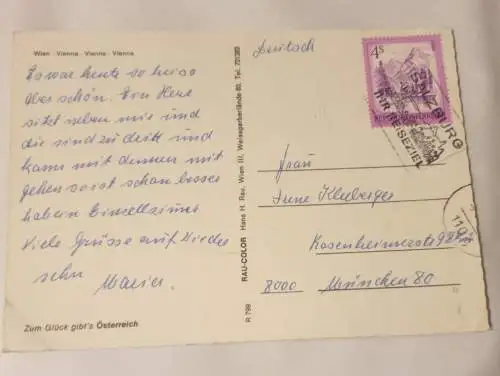 Wien · Vienna · Vienne · Vienna
Es war heute so heiss
aber schön. Ein Herr
sitzt neben mir und
die sind zu dritt und
kann mit denen mit
gehen so ist schon besser
habern Einzellzimmer
Viele Grüsse auf Wieder
sehn Maria.
Zum Glück gibt's Österreich
R 799
RAU-COLOR Hans H. Rau, Wien III, Weissgerberlände 60, Tel. 731383
Deutsch
4S
REPUBLIK ÖSTERREICH
SALZBURG
IHR REISEZIEL
Frau
Irene Kleeberger
Rosenheimerstr
8000 München 80